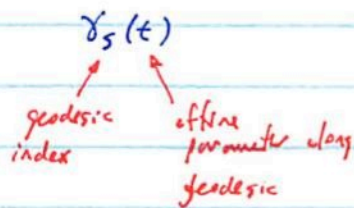 γₛ(t)
geodesic
index
affine
parameter along
geodesic